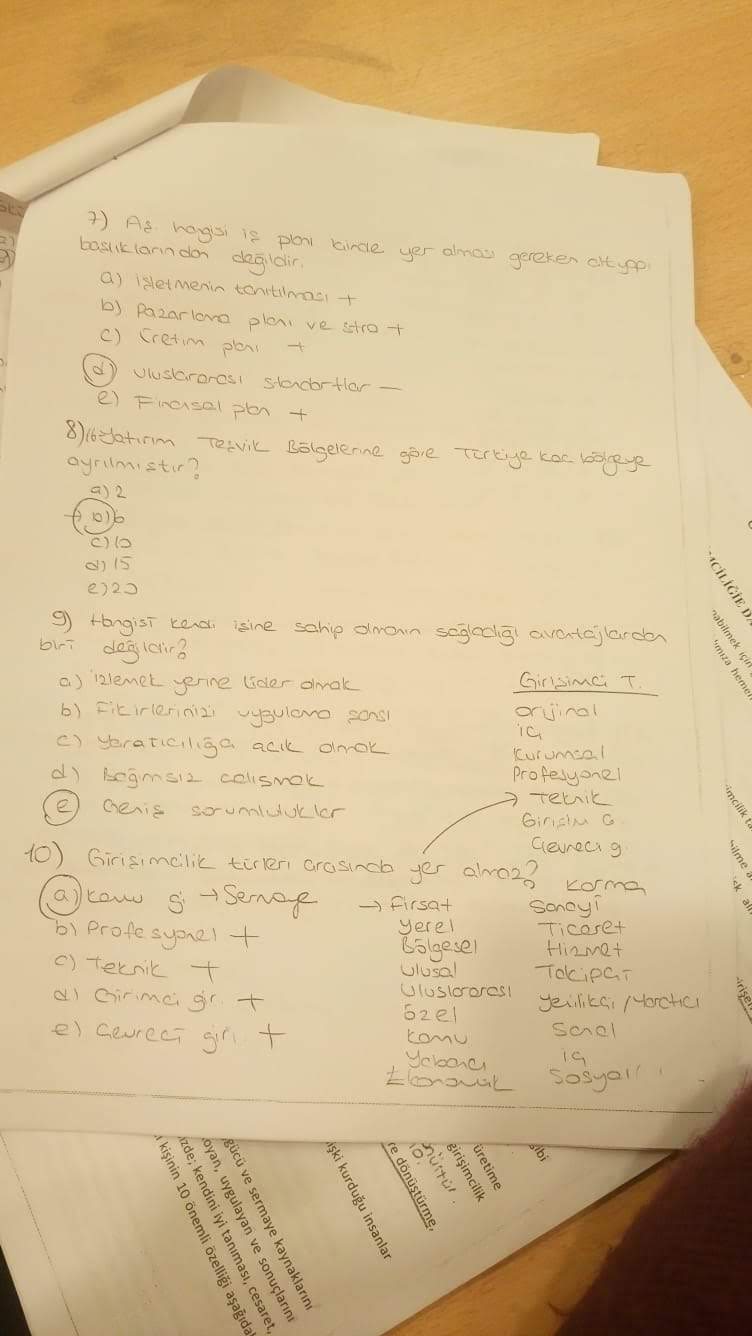 7) Aş. hangisi iş planı içinde yer alması gereken altyapı
başlıklarından değildir.
a) işletmenin tanıtılması +
b) Pazarlama planı ve stra +
c) Üretim planı +
d) uluslararası standartlar —
e) Finansal plan +
8) Yatırım Teşvik Bölgelerine göre Türkiye kaç bölgeye
ayrılmıştır?
a) 2
b) 6
c) 10
d) 15
e) 20
9) Hangisi kendi işine sahip olmanın sağladığı avantajlardan
biri değildir?
a) izlemek yerine lider olmak
b) Fikirlerinizi uygulama şansı
c) Yaratıcılığa açık olmak
d) Bağmsız çalışmak
e) Geniş sorumluluklar
Girişimci T.
orijinal
iç
kurumsal
Profesyonel
→ Teknik
Girişim G.
Çevreci g.
10) Girişimcilik türleri arasında yer almaz?
a) kamu gi → Sermaye
b) Profesyonel +
c) Teknik +
d) Girimci gir. +
e) Çevreci giri. +
→ Fırsat
yerel
Bölgesel
ulusal
uluslararası
özel
kamu
Yabancı
Ekonomik
karma
Sanayi
Ticaret
Hizmet
Takipçi
yenilikçi / Yaratıcı
Sanal
iç
Sosyal
MCİLİĞİE DA
nabilmek için
umıza hemen
imcilik ta
ilme a
sibi
üretime
girişimcilik
re dönüştürme,
işki kurduğu insanlar
gücü ve sermaye kaynaklarını
oyan, uygulayan ve sonuçlarını
zde; kendini iyi tanıması, cesaret,
i kişinin 10 önemli özelliği aşağıda